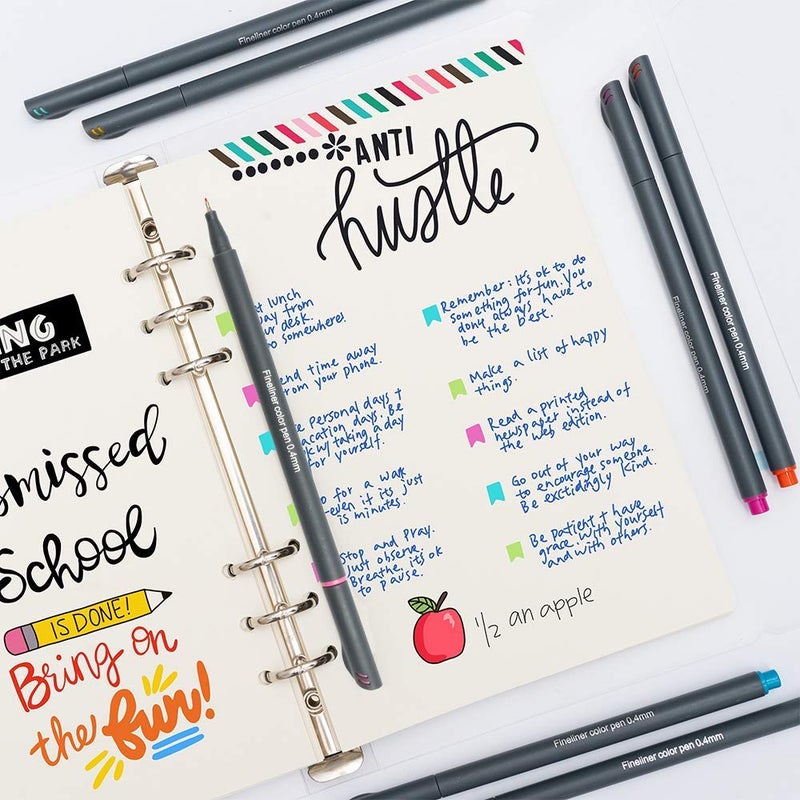 Fineliner color pen 0.4mm
ANTI
hustle
lunch
from
desk.
somewhere!
time away
from your phone.
personal days +
days. Be
taking a day
for yourself.
for a walk
even if its just
minutes.
Stop and Pray.
Just observe.
Breathe. it's ok
to pause.
Remember: It's ok to do
something for fun. You
don't always have to
be the best.
Make a list of happy
things.
Read a printed
newspaper instead of
the web edition.
Go out of your way
to encourage someone.
Be exctidingly kind.
Be patient + have
grace with yourself
and with others.
1/2 an apple
NG
THE PARK
smissed
School
IS DONE!
Bring on
the fun!
Fineliner color pen 0.4mm
Fineliner color pen 0.4mm
Fineliner color pen 0.4mm
Fineliner color pen 0.4mm
Fineliner color pen 0.4mm